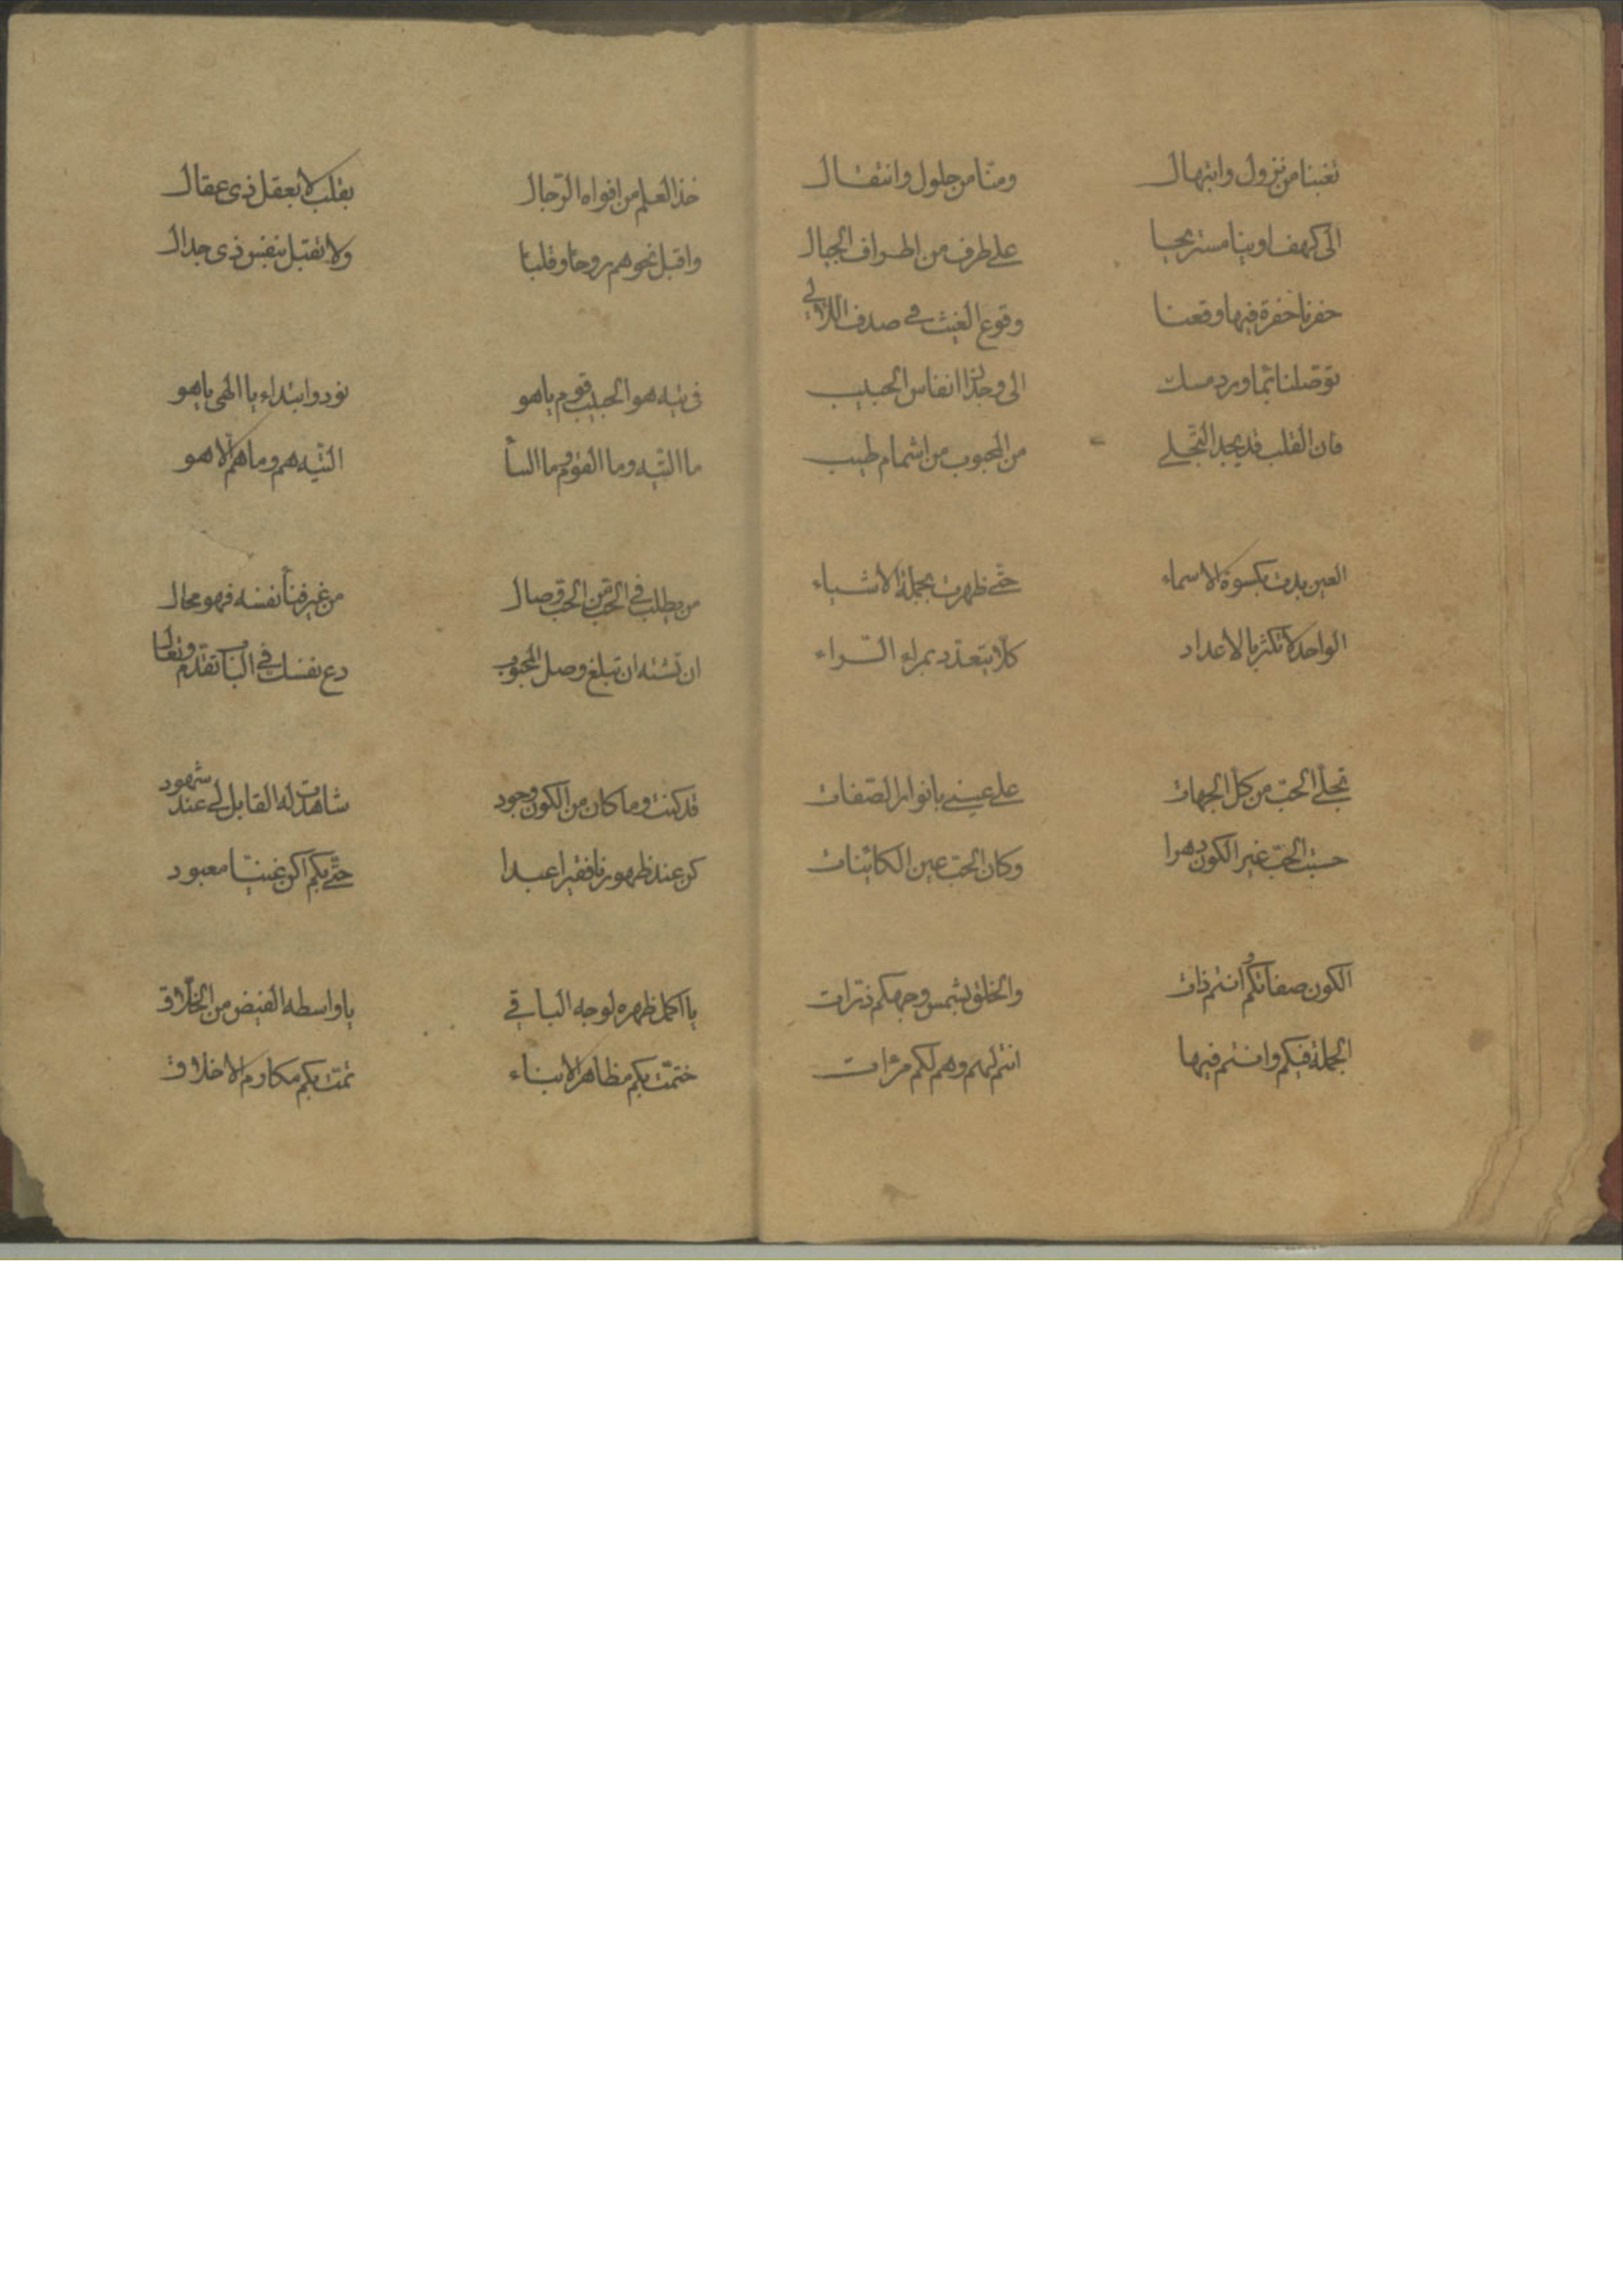 تغبنا من نزول وابتهال ومنا من حلول وانتقال
الى كهف اوينا مستريحا على طرف من اطراف الجبال
حفرنا حفرة فيها وقعنا وقوع الغيث فى صدف اللآلى
توصلنا بما ورد مسك الى وجدان انفاس الحبيب
فان القلب قد يجد التجلى من المحبوب من اشمام طيب
العين بدت بكسوة الاسماء حتى ظهرت بجملة الاشياء
الواحد لا تكثر بالاعداد كلا يتعدد بمراء الراء
تجلى الحب من كل الجهات على عينى بانوار الصفات
حسبت الحب غير الكون دهرا وكان الحب عين الكائنات
الكون صفاتكم وانتم ذات والخلق بشمس وجهكم ذرات
الجملة فيكم وانتم فيها انتم لهم وهم لكم مرءات
خذ العلم من افواه الرجال بقلب لا بعقل ذى عقال
واقبل نحوهم روحا وقلبا ولا تقبل بنفس ذى جدال
فى تيه هو الحبيب قوم ياهو نودوا ابتداء يا الهى ياهو
ما التيه وما القوم وما النبأ التيه هم وما هم الا هو
من يطلب فى الحب من الحب وصال من غير فنا نفسه فهو محال
ان تشته ان تبلغ وصل المحبوب دع نفسك فى الباب تقدم وتعال
قد كنت وما كان من الكون وجود شاهدت له القابل لى عند شهود
كن عند ظهورنا فقيرا عبدا حتى بكم اكن غنيا معبود
يا اكمل ظهره لوجه الباقى يا واسطه الفيض من الخلاق
ختمت بكم مظاهر الانبياء تمت بكم مكارم الاخلاق